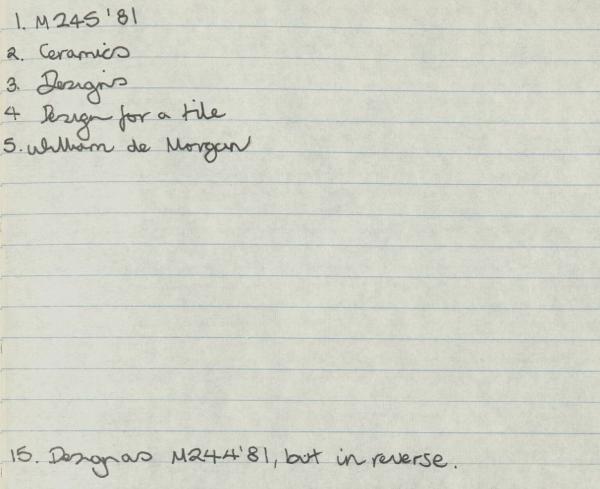 1. M245'81
2. Ceramics
3. Designs
4 Design for a tile
5. William de Morgan
15. Design as M244'81, but in reverse.